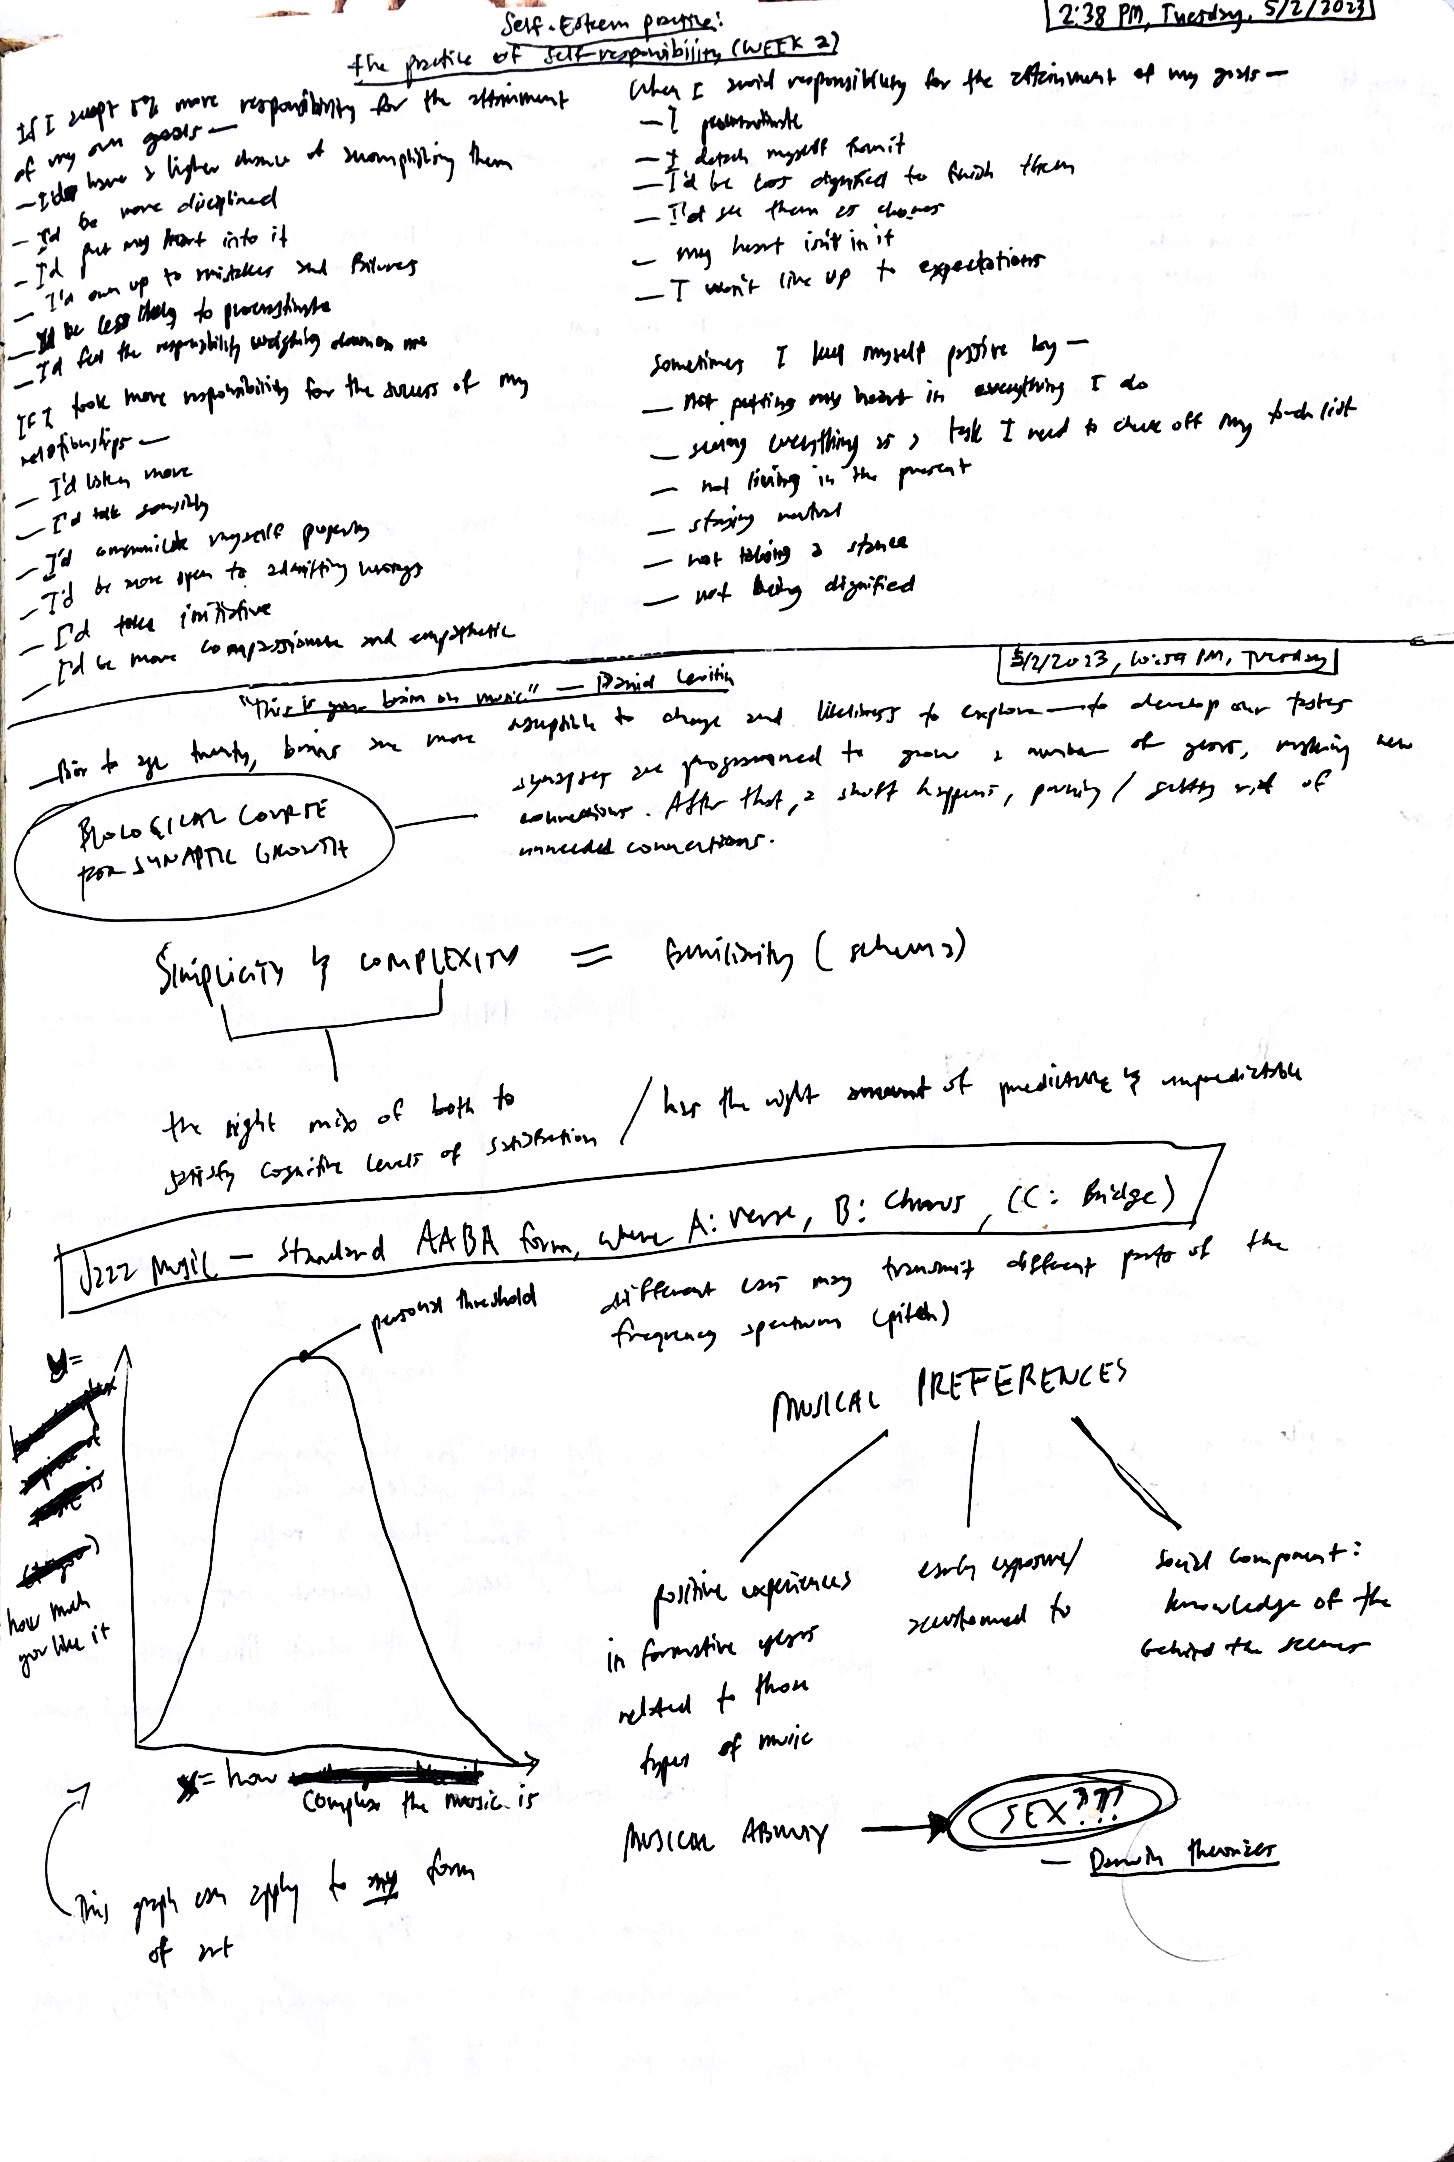 2:38 PM, Tuesday, 5/2/2023
Self-Esteem practice:
the practice of self-responsibility (WEEK 2)
If I accept 5% more responsibility for the attainment
of my own goals —
— I'd have a higher chance of accomplishing them
— I'd be more disciplined
— I'd put my heart into it
— I'd own up to mistakes and failures
— I'd be less likely to procrastinate
— I'd feel the responsibility weighing down on me
If I took more responsibility for the success of my
relationships —
— I'd listen more
— I'd talk sensibly
— I'd communicate myself properly
— I'd be more open to admitting wrongs
— I'd take initiative
— I'd be more compassionate and empathetic
When I avoid responsibility for the attainment of my goals —
— I procrastinate
— I detach myself from it
— I'd be less dignified to finish them
— I'd see them as chores
— my heart isn't in it
— I won't live up to expectations
Sometimes I keep myself passive by —
— not putting my heart in everything I do
— seeing everything as a task I need to check off my to-do list
— not living in the present
— staying neutral
— not taking a stance
— not being dignified
5/2/2023, 10:59 PM, Tuesday
"This is your brain on music" — Daniel Levitin
— Prior to age twenty, brains are more susceptible to change and likeliness to explore — to develop our tastes
BIOLOGICAL COURSE
FOR SYNAPTIC GROWTH
synapses are programmed to grow a number of years, making new
connections. After that, a shift happens, pruning / getting rid of
unneeded connections.
Simplicity & COMPLEXITY = familiarity (schema)
the right mix of both to
satisfy cognitive levels of satisfaction
/ has the right amount of predictable & unpredictable
Jazz Music — Standard AABA form, where A: verse, B: Chorus, (C: Bridge)
personal threshold
different ears may transmit different parts of the
frequency spectrum (pitch)
y =
how much
you like it
x = how
complex the music is
This graph can apply to any form
of art
MUSICAL PREFERENCES
positive experiences
in formative years
related to those
types of music
early exposure/
accustomed to
Social component:
knowledge of the
behind the scenes
MUSICAL ABILITY
SEX????
— Darwin theorizes